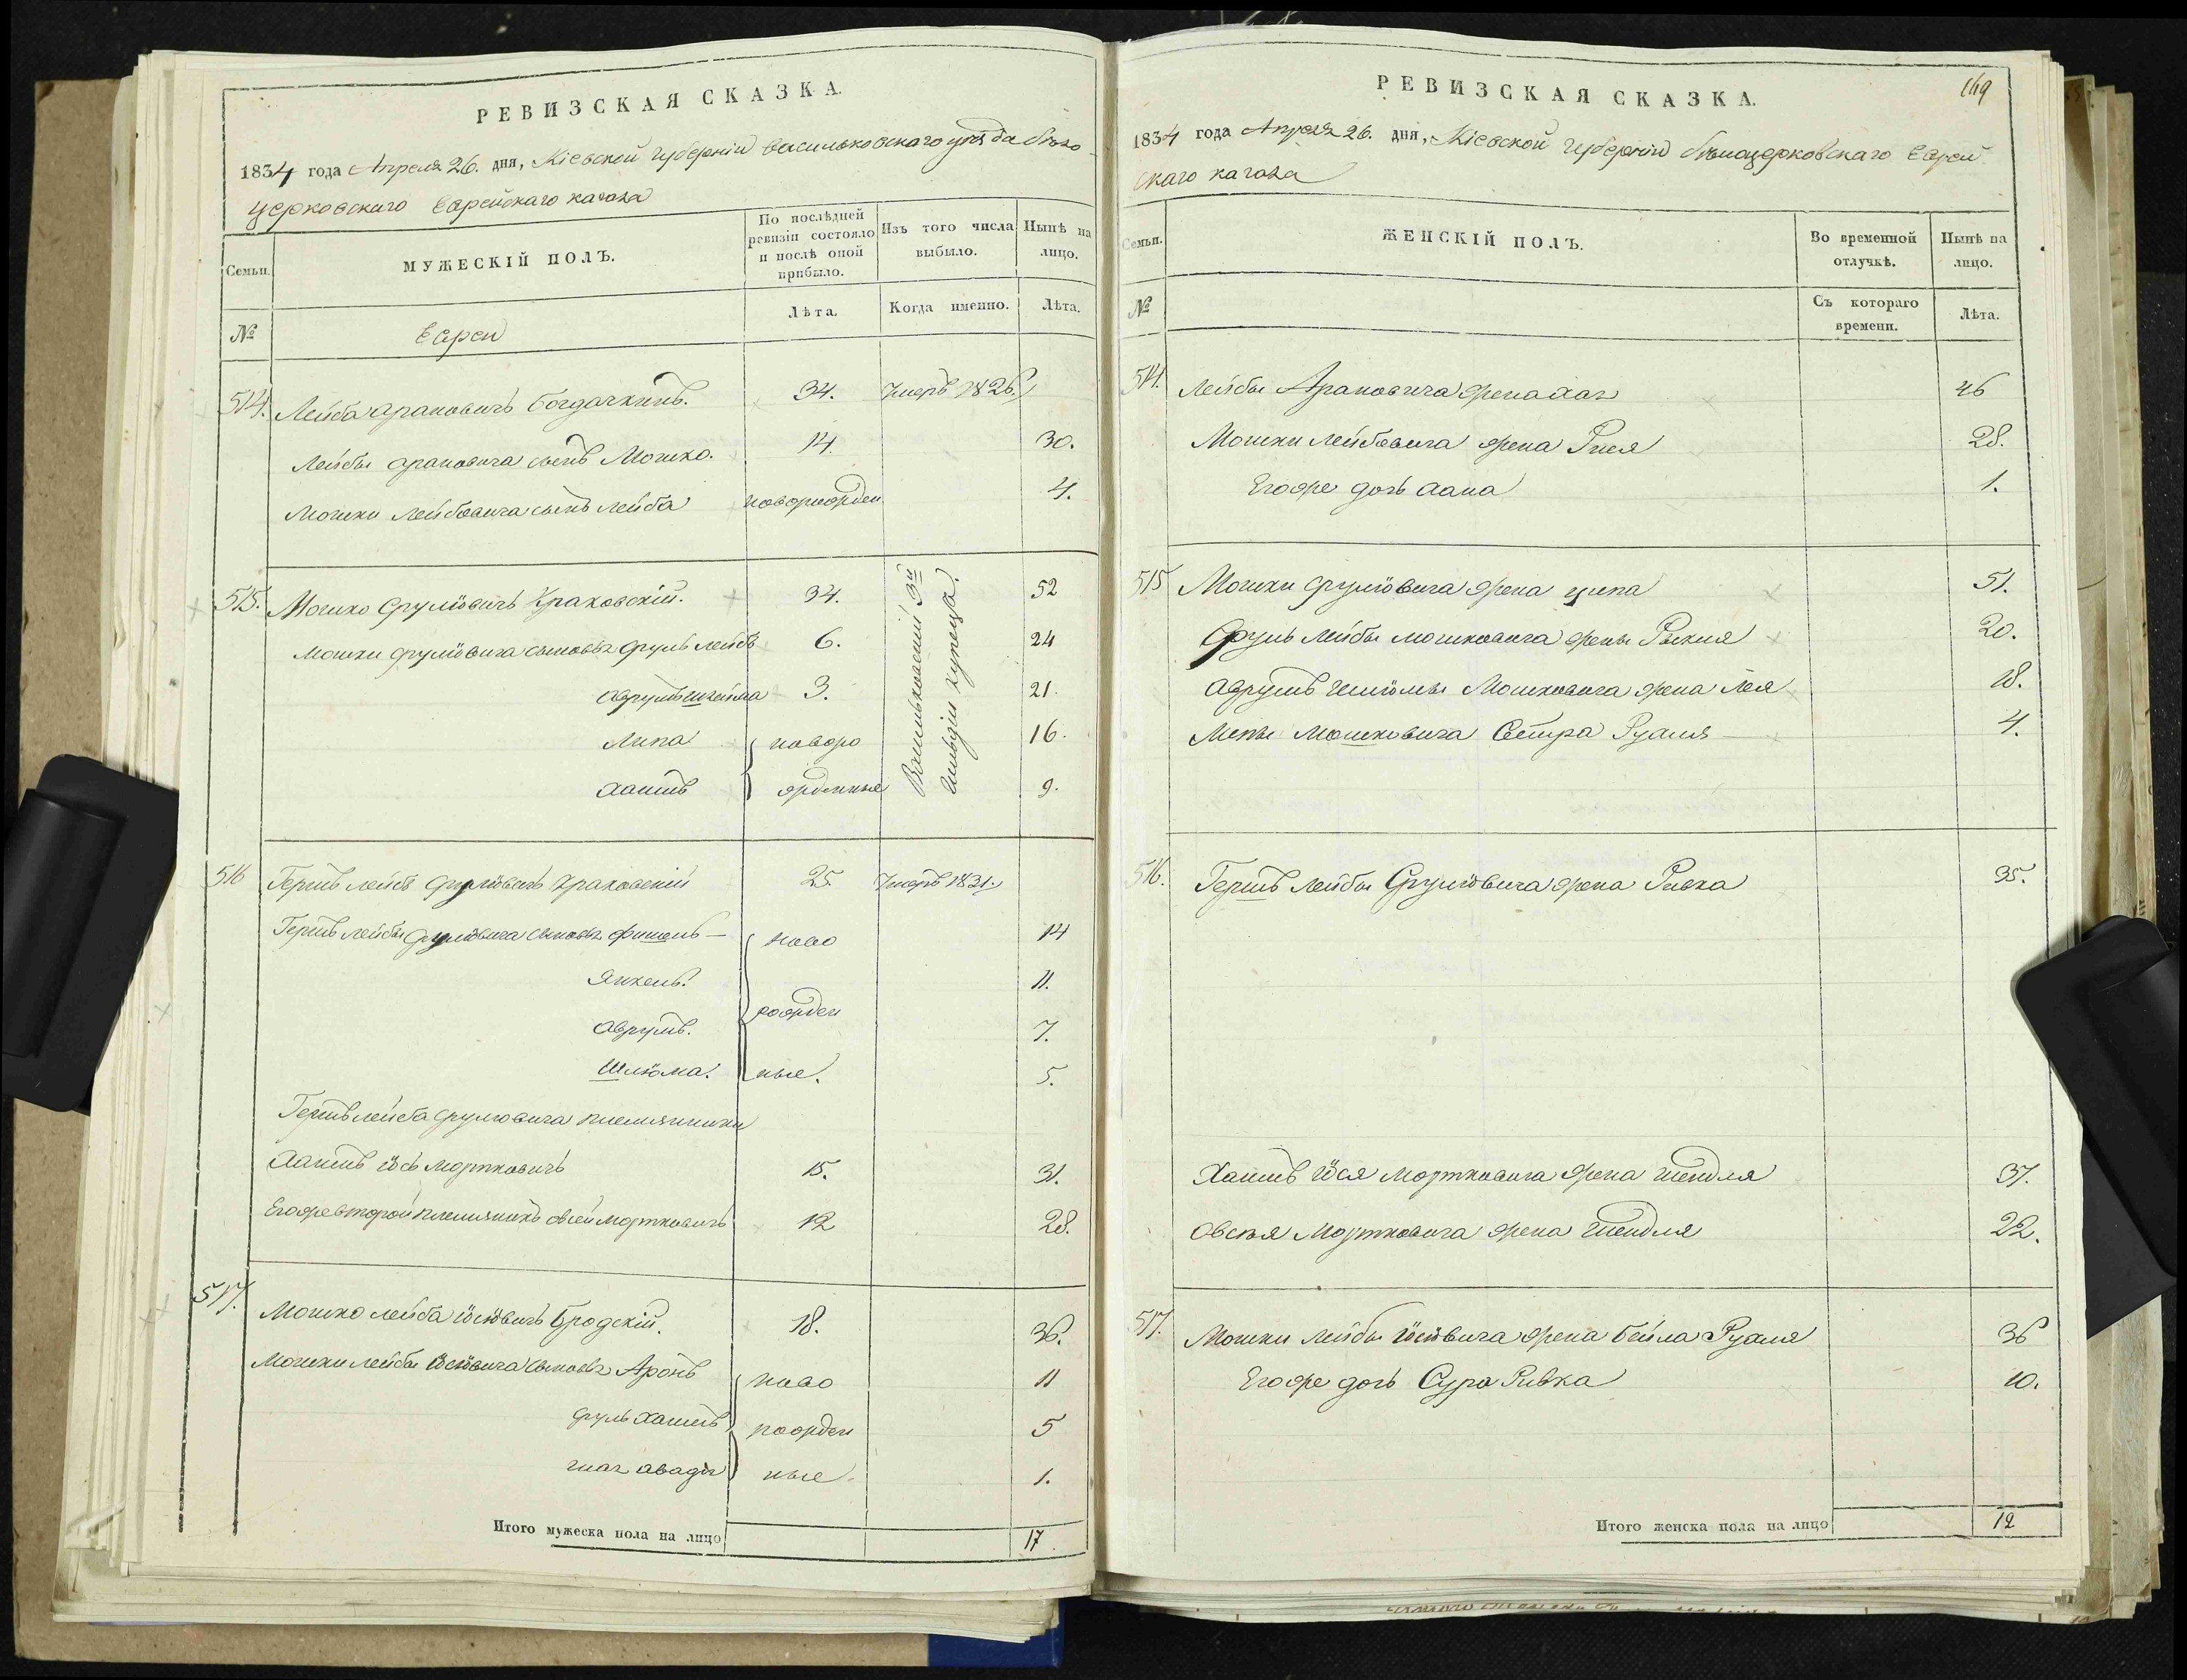 РЕВИЗСКАЯ СКАЗКА.
1834 года Апреля 26. дня, Кіевской губерніи Васильковскаго уѣзда бѣло-
церковскаго Еврейскаго кагала
Семьи.
МУЖЕСКІЙ ПОЛЪ.
По послѣдней ревизіи состояло и послѣ оной прибыло.
Изъ того числа выбыло.
Нынѣ на лицо.
№
Евреи
Лѣта.
Когда именно.
Лѣта.
514. Лейба Арановичъ 34. Умеръ 1826.
Лейбы Арановича сынъ Мошко. 14. 30.
Мошки Лейбовича сынъ Лейба новорожден 4.
515. Мошко Срулiовичъ Краковскій. 34. 52
Мошки Срулiовича сыновья Сруль Лейба 6. 24
Аврумъ 3. 21.
Липа новоро 16.
Хаимъ жденные 9.
Васильковскій 3й
гильдіи купецъ.
516 Гершъ Лейба Срулiовичъ Краковскій 25. Умеръ 1831.
Гершъ Лейбы Срулiовича сыновья Фишель ново 14
Янкель. 11.
рожден
Аврумъ. 7.
Шлiома. ные. 5.
Гершъ Лейба Срулiовича племянники
Хаимъ Iось Мортковичъ 15. 31.
Егоже второй племянникъ Овсей Мортковичъ 12 28.
517. Мошко Лейба Iосiовичъ Бродскій. 18. 36.
Мошки Лейбы Iосiовича сыновья Аронъ ново 11
Сруль Хаимъ рожден 5
ные. 1.
Итого мужеска пола на лицо 17.
РЕВИЗСКАЯ СКАЗКА.
169
1834 года Апреля 26. дня, Кіевской губерніи бѣлоцерковскаго Еврей
скаго кагала
Семьи.
ЖЕНСКІЙ ПОЛЪ.
Во временной отлучкѣ.
Нынѣ на лицо.
№
Съ котораго времени.
Лѣта.
514. Лейбы Арановича жена Хая 46
Мошки Лейбовича жена 28.
Егоже дочь Хана 1.
515 Мошки Срулiовича жена Ципа 51.
Сруль Лейбы Мошковича жена 20.
Аврумъ Мошковича жена Лея 18.
Мошковича Сестра Рухля 4.
516. Гершъ Лейбы Срулiовича жена Ривка 35.
Хаимъ Iося Мортковича жена Шендля 37.
Овсея Мортковича жена Шендля 22.
517. Мошки Лейбы Iосiовича жена Бейла Рухля 36
Егоже дочь Сура Ривка 10.
Итого женска пола на лицо 12